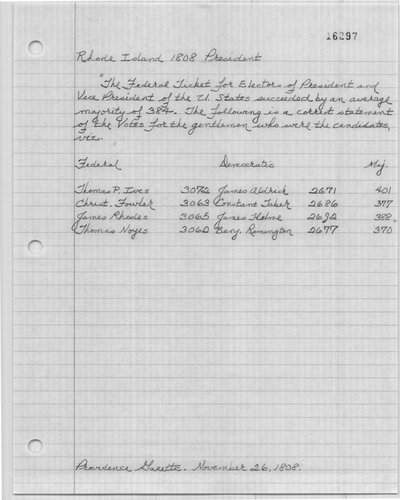 16297
Rhode Island 1808 President
"The Federal Ticket for Electors of President and
Vice President of the U. States succeeded by an average
majority of 384. The following is a correct statement
of the Votes for the gentlemen who were the candidates,
viz.
Federal Democratic Maj.
Thomas P. Ives 3072 James Aldrich 2671 401
Christ. Fowler 3063 Constant Taber 2686 377
James Rhodes 3065 James Helme 2692 388"
Thomas Noyes 3062 Benj. Remington 2677 370
Providence Gazette. November 26, 1808.